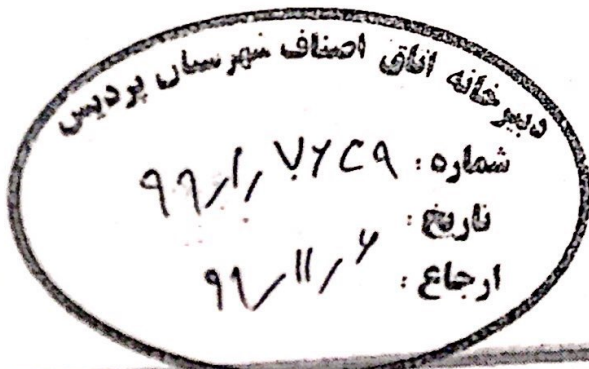 دبیرخانه اتاق اصناف شهرستان پردیس
شماره: ۹۹/۱/۷۶۲۹
تاریخ:
ارجاع: ۹۹/۱۱/۶